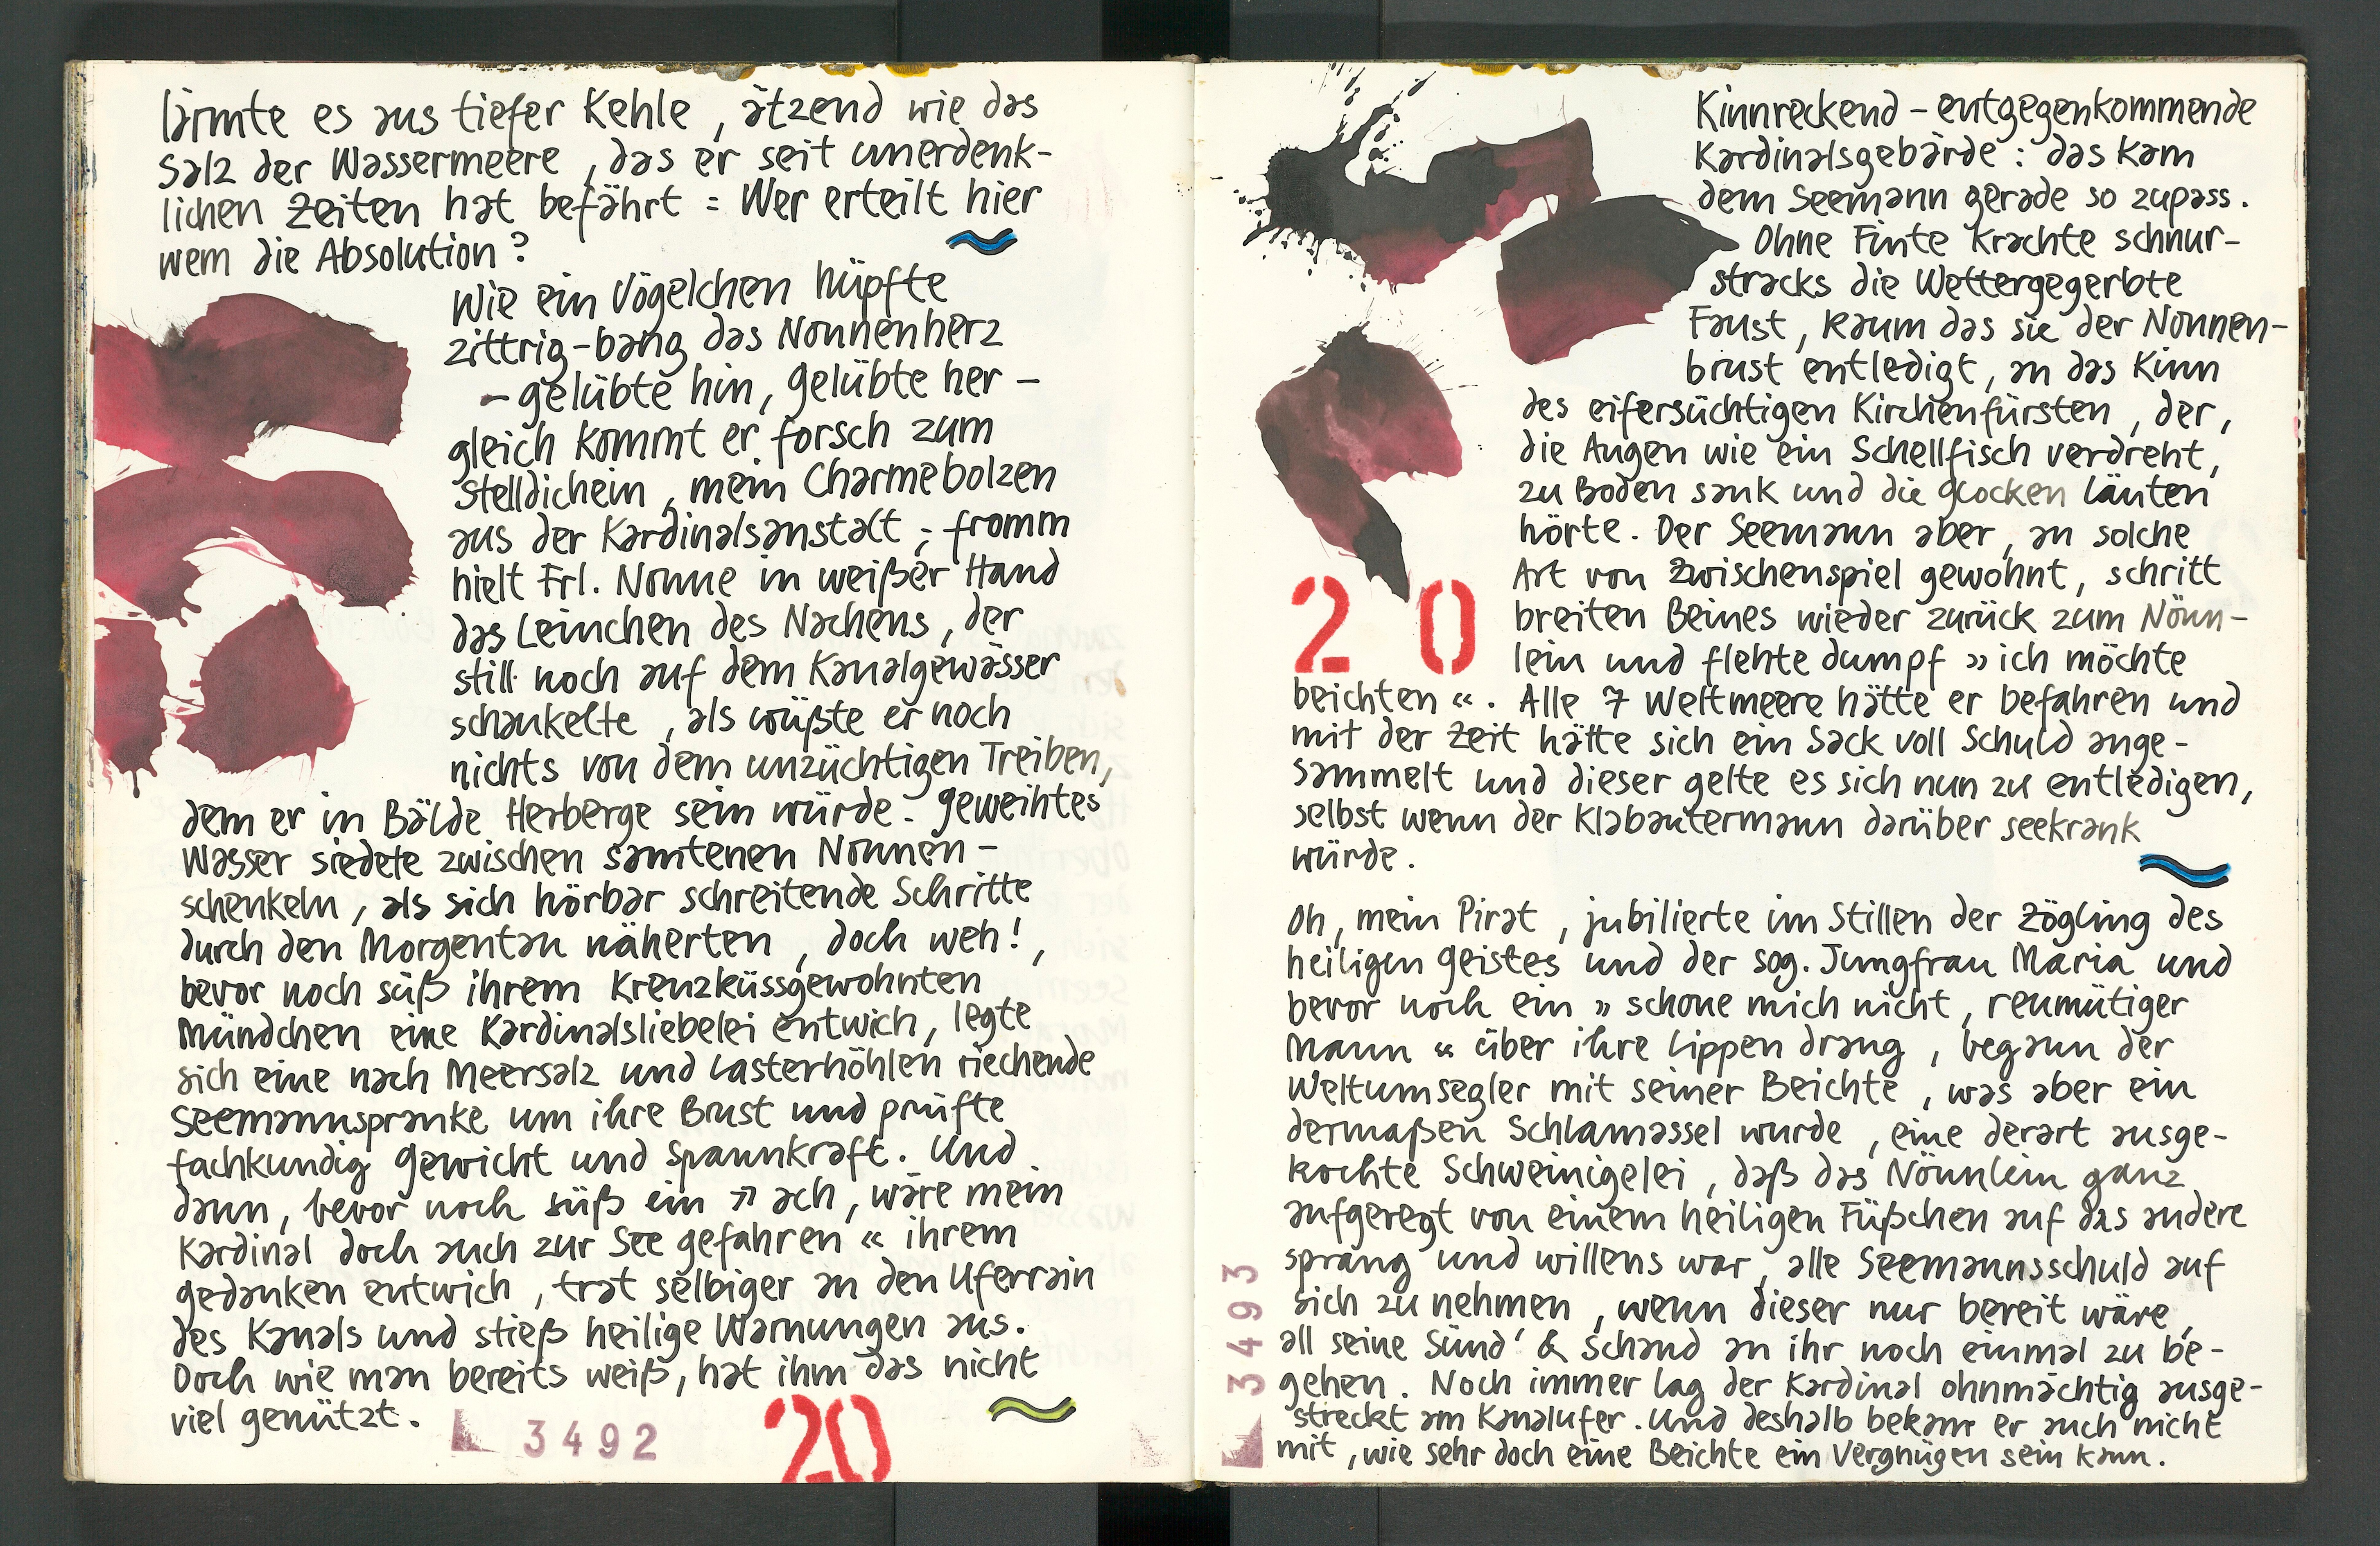 lärmte es aus tiefer Kehle, ätzend wie das
Salz der Wassermeere, das er seit unerdenk-
lichen Zeiten hat befährt : Wer erteilt hier
wem die Absolution?
Wie ein Vögelchen hüpfte
zittrig-bang das Nonnenherz
- gelübte hin, gelübte her -
gleich kommt er forsch zum
Stelldichein, mein Charmebolzen
aus der Kardinalsanstalt ; fromm
hielt Frl. Nonne in weißer Hand
das Leinchen des Nachens, der
still noch auf dem Kanalgewässer
schaukelte, als wüßte er noch
nichts von dem unzüchtigen Treiben,
dem er in Bälde Herberge sein würde. geweihtes
Wasser siedete zwischen samtenen Nonnen-
schenkeln, als sich hörbar schreitende Schritte
durch den Morgentau näherten, doch weh!,
bevor noch süß ihrem Kreuzküssgewohnten
Mündchen eine Kardinalsliebelei entwich, legte
sich eine nach Meersalz und Lasterhöhlen riechende
Seemannspranke um ihre Brust und prüfte
fachkundig Gewicht und Spannkraft. Und
dann, bevor noch süß ein » ach, wäre mein
Kardinal doch auch zur See gefahren « ihrem
gedanken entwich, trat selbiger an den Uferrain
des Kanals und stieß heilige Warnungen aus.
Doch wie man bereits weiß, hat ihm das nicht
viel genützt.
3492
20
Kinnreckend - entgegenkommende
Kardinalsgebärde : das kam
dem Seemann gerade so zupass.
Ohne Finte krachte schnur-
stracks die Wettergegerbte
Faust, kaum das sie der Nonnen-
brust entledigt, an das Kinn
des eifersüchtigen Kirchenfürsten, der,
die Augen wie ein Schellfisch verdreht,
zu Boden sank und die Glocken läuten
hörte. Der Seemann aber, an solche
Art von Zwischenspiel gewohnt, schritt
breiten Beines wieder zurück zum Nönn-
lein und flehte dumpf » ich möchte
20
beichten «. Alle 7 Weltmeere hätte er befahren und
mit der Zeit hätte sich ein Sack voll Schuld ange-
sammelt und dieser gelte es sich nun zu entledigen,
selbst wenn der Klabautermann darüber seekrank
würde.
Oh, mein Pirat, jubilierte im Stillen der Zögling des
heiligen Geistes und der sog. Jungfrau Maria und
bevor noch ein » schone mich nicht, reumütiger
Mann « über ihre Lippen drang, begann der
Weltumsegler mit seiner Beichte, was aber ein
dermaßen Schlamassel wurde, eine derart ausge-
kochte Schweinigelei, daß das Nönnlein ganz
aufgeregt von einem heiligen Füßchen auf das andere
sprang und willens war, alle Seemannsschuld auf
sich zu nehmen, wenn dieser nur bereit wäre,
all seine Sünd' & Schand an ihr noch einmal zu be-
gehen. Noch immer lag der Kardinal ohnmächtig ausge-
streckt am Kanalufer. Und deshalb bekam er auch nicht
mit, wie sehr doch eine Beichte ein Vergnügen sein kann.
3493